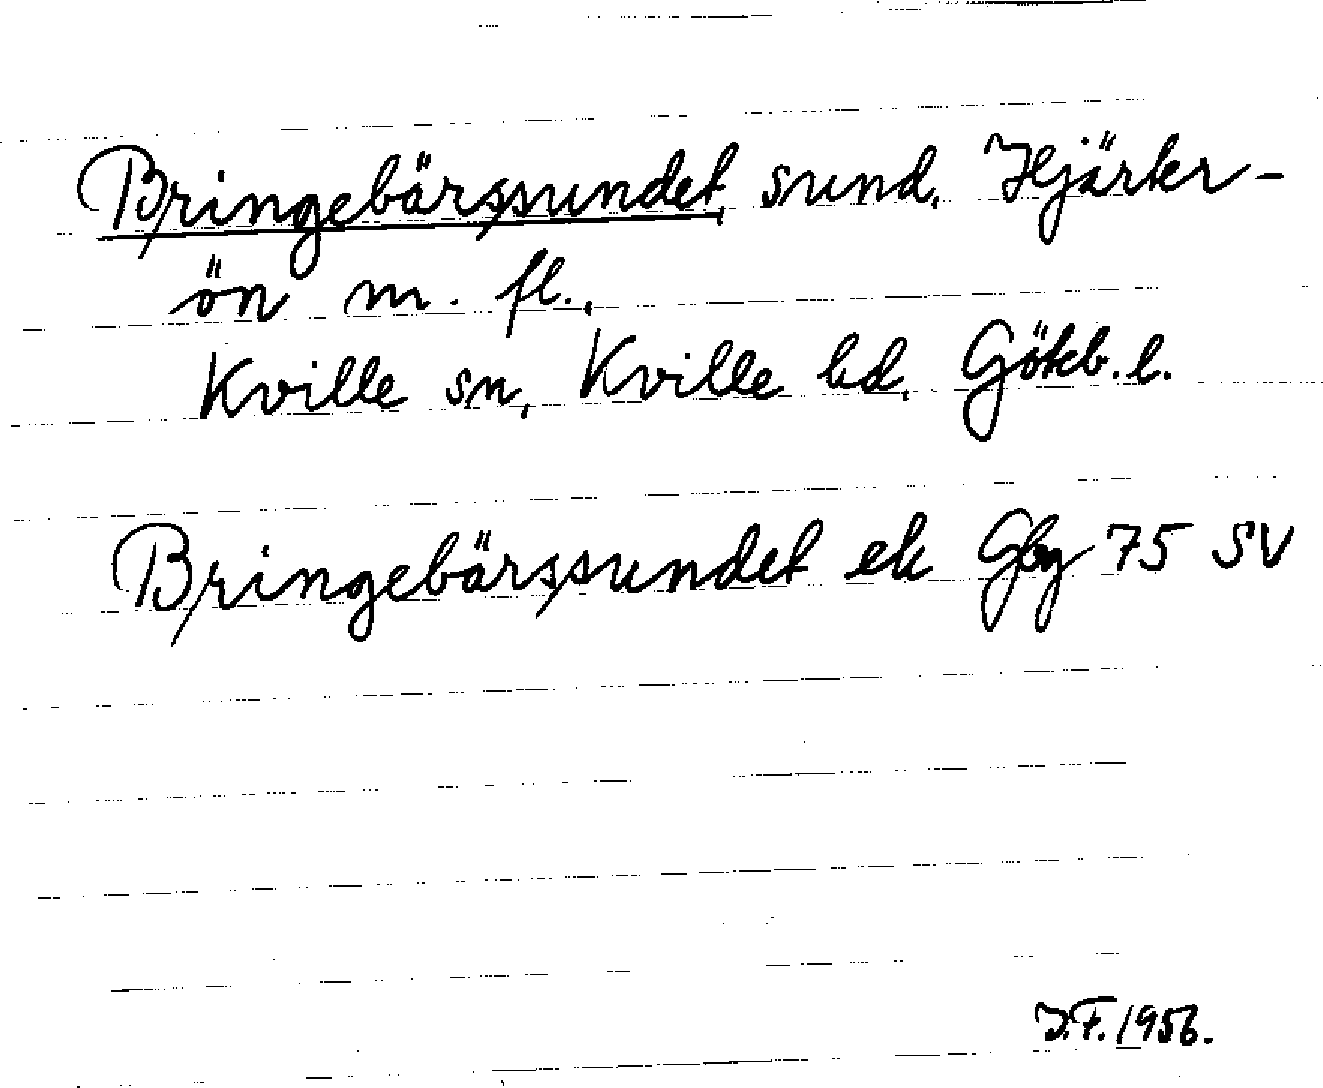 Bringebärssundet, sund, Hjärter-
ön m. fl.,
Kville sn, Kville hd, Götebl.
Bringebärssundet ek Gbg 75 SV
J.F. 1956.